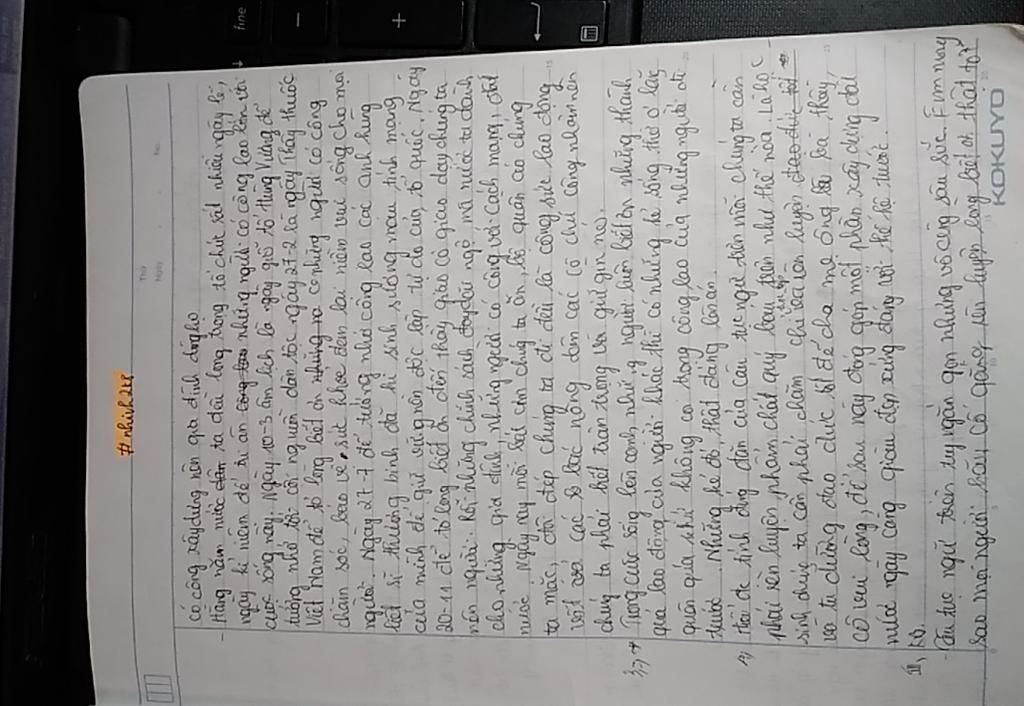 #nhinh2k8
có công xây dựng nên gia đình dòng họ
- Hằng năm nước ta đều long trọng tổ chức rất nhiều ngày lễ,
ngày kỉ niệm để tri ân những người có công lao lớn với
cuộc sống này. Ngày 10-3 âm lịch là ngày giỗ tổ Hùng Vương để
tưởng nhớ tới cội nguồn dân tộc ngày 27-2 là ngày Thầy thuốc
Việt Nam để tỏ lòng biết ơn những người có công
chăm sóc, bảo vệ sức khỏe đem lại niềm vui sống cho mọi
người. Ngày 27-7 để tưởng nhớ công lao các anh hùng
liệt sĩ thương binh đã hi sinh xương máu tính mạng
của mình để giữ vững nền độc lập tự do của tổ quốc. Ngày
20-11 để tỏ lòng biết ơn đến thầy giáo cô giáo dạy chúng ta
nên người. Rồi những chính sách đãi ngộ mà nước ta dành
cho những gia đình, những người có công với Cách mạng, đất
nước. Ngày nay mỗi bát cơm chúng ta ăn, bộ quần áo chúng
ta mặc, đôi dép chúng ta đi đều là công sức lao động
vất vả các bác nông dân các cô chú công nhân nên
chúng ta phải biết trân trọng và giữ gìn nó.
3, + Trong cuộc sống bên cạnh những người luôn biết ơn những thành
quả lao động của người khác thì có những kẻ sống thờ ơ lãng
quên quá khứ không coi trọng công lao của những người đi
trước. Những kẻ đó thật đáng lên án.
4, Từ sự đúng đắn của câu tục ngữ trên mỗi chúng ta cần
phải rèn luyện phẩm chất quý báu trên như thế nào. Là học
sinh chúng ta cần phải chăm chỉ học tập rèn luyện
và tu dưỡng đạo đức để cha mẹ ông bà thầy
cô vui lòng, để sau này đóng góp một phần xây dựng đất
nước ngày càng giàu đẹp xứng đáng với thế hệ trước.
III, KB.
- Câu tục ngữ trên tuy ngắn gọn nhưng vô cùng sâu sắc. Em mong
sao mọi người hãy cố gắng rèn luyện lòng biết ơn thật tốt
KOKUYO